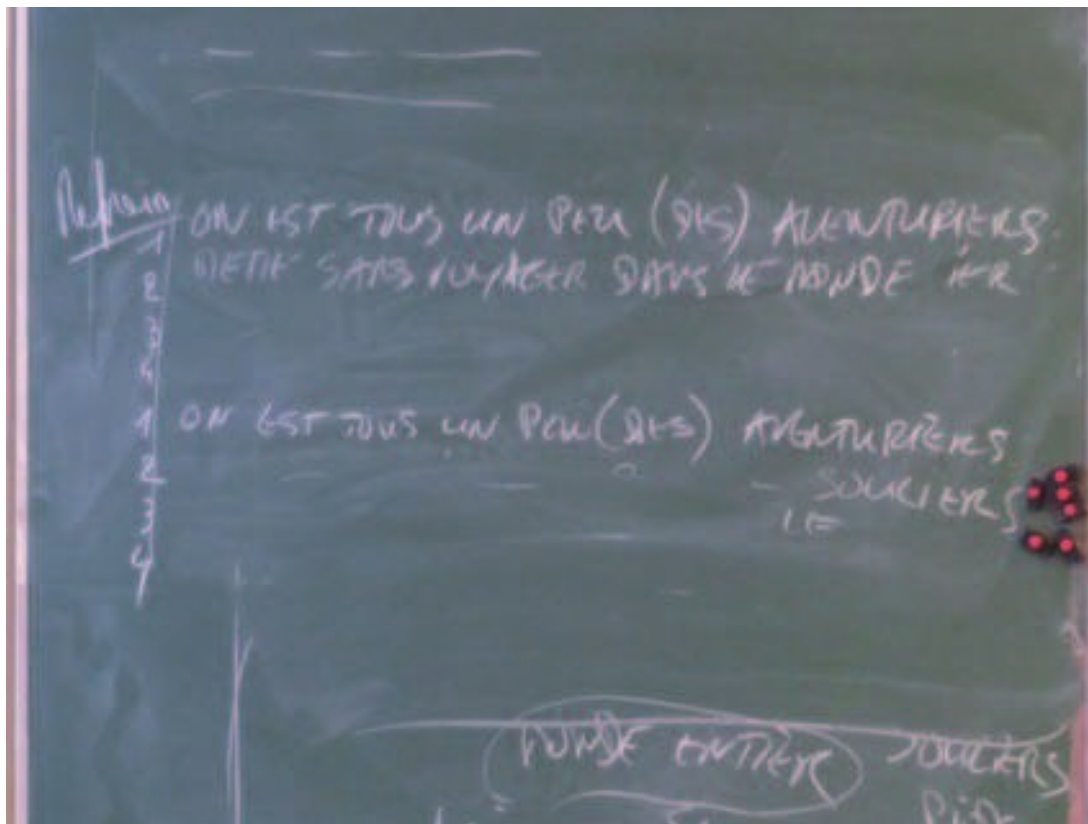 Refrain
1 ON EST TOUS UN PEU (DES) AVENTURIERS
2 MEME SANS VOYAGER DANS LE MONDE IER
3
4
1 ON EST TOUS UN PEU (DES) AVENTURIERS
2 - SOULIERS
3 LE
4
MONDE ENTIER SOULIERS